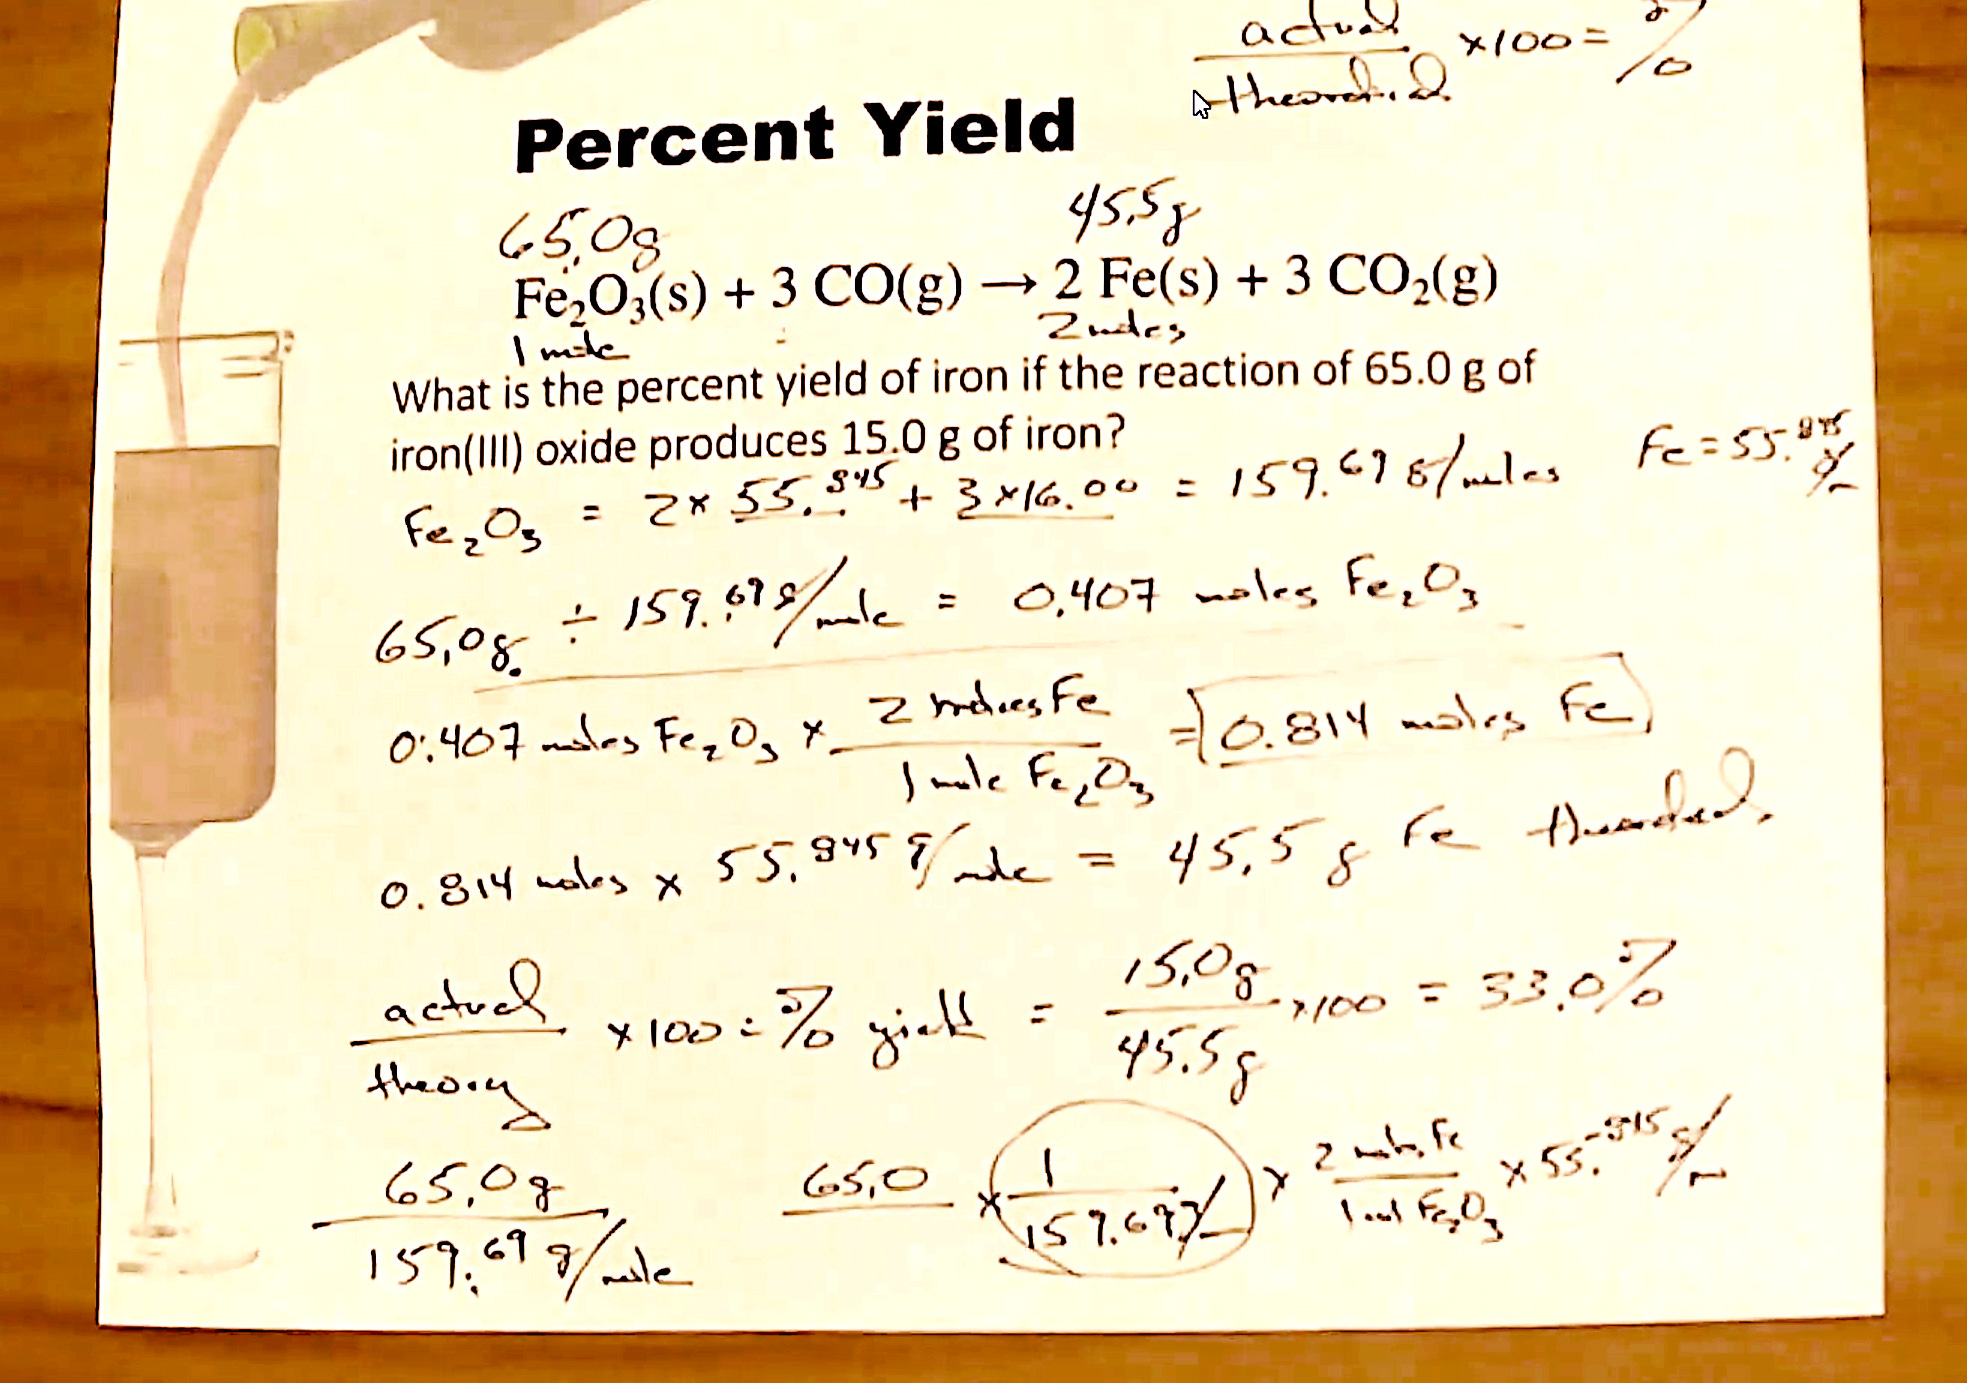 actual
———— ×100 = %
theoretical
Percent Yield
65.0g 45.5g
Fe₂O₃(s) + 3 CO(g) → 2 Fe(s) + 3 CO₂(g)
1 mole 2 moles
What is the percent yield of iron if the reaction of 65.0 g of
iron(III) oxide produces 15.0 g of iron?
Fe = 55.845 g/m
Fe₂O₃ = 2 × 55.845 + 3 × 16.00 = 159.69 g/moles
65.0g ÷ 159.69 g/mole = 0.407 moles Fe₂O₃
0.407 moles Fe₂O₃ × 2 moles Fe / 1 mole Fe₂O₃ = 0.814 moles Fe
0.814 moles × 55.845 g/mole = 45.5 g Fe
actual / theory × 100 = % yield = 15.0g / 45.5g × 100 = 33.0%
65.0g / 159.69 g/mole
65.0 × 1 / 159.69 g/m × 2 mol Fe / 1 mol Fe₂O₃ × 55.845 g/m